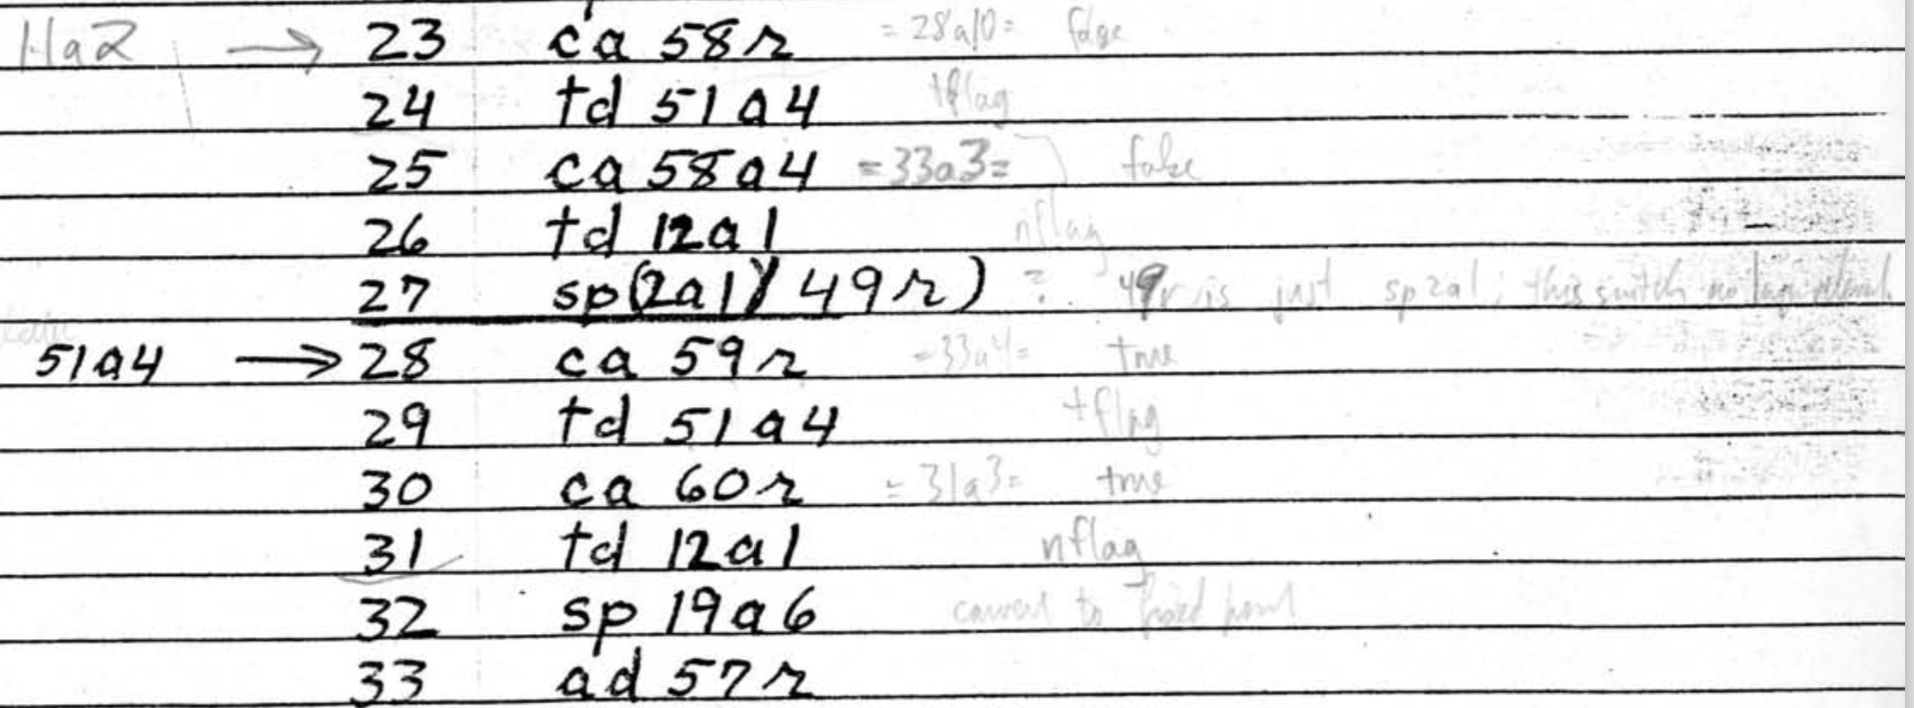 11a2 → 23 ca 58r = 28a10 = false
24 td 51a4 tflag
25 ca 58a4 = 33a3 = false
26 td 12a1 nflag
27 sp(2a1)(49r) ? 49r is just sp2a1; this switch no
51a4 → 28 ca 59r = 33a4 = true
29 td 51a4 tflag
30 ca 60r = 31a3 = true
31 td 12a1 nflag
32 sp 19a6 convert to fixed point
33 ad 57r